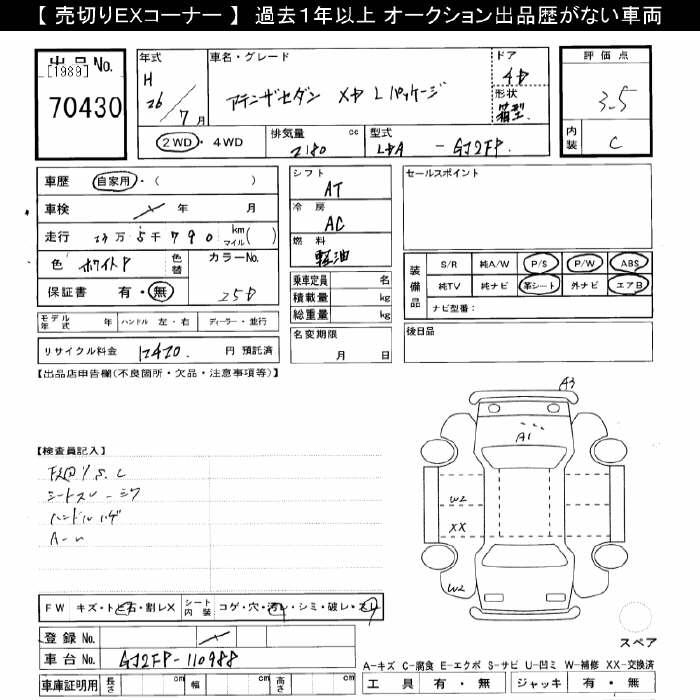 【 売切りEXコーナー 】 過去１年以上 オークション出品歴がない車両
出品No.
[1989]
70430
年式
H
26/7月
車名・グレード
アテンザセダン XD Lパッケージ
ドア
4D
形状
箱型
評価点
3.5
内装
C
2WD・4WD
排気量 cc
2180
型式
LDA - GJ2FP
車歴 自家用・( )
車検 年 月
走行 万5千790 km マイル( )
色 ホワイトP 色替
カラーNo.
25D
保証書 有・無
モデル年式 年 ハンドル 左・右 ディーラー・並行
リサイクル料金 12420 円 預託済
シフト
AT
冷房
AC
燃料
軽油
乗車定員 名
積載量 kg
総重量 kg
名変期限
月 日
セールスポイント
装備品
S/R 純A/W P/S P/W ABS
純TV 純ナビ 革シート 外ナビ エアB
ナビ型番：
後日品
【出品店申告欄(不良箇所・欠品・注意事項等)】
【検査員記入】
シートスレ-シワ
ハンドルハゲ
A-U
A3
A1
W2
XX
W2
スペア
FW キズ・トビ石・割レX シート内装 コゲ・穴・汚レ・シミ・破レ・スレ
登録 No.
車台 No. GJ2FP-110988
車庫証明用 長さ cm 幅 cm 高さ cm
A-キズ C-腐食 E-エクボ S-サビ U-凹ミ W-補修 XX-交換済
工具 有・無 ジャッキ 有・無